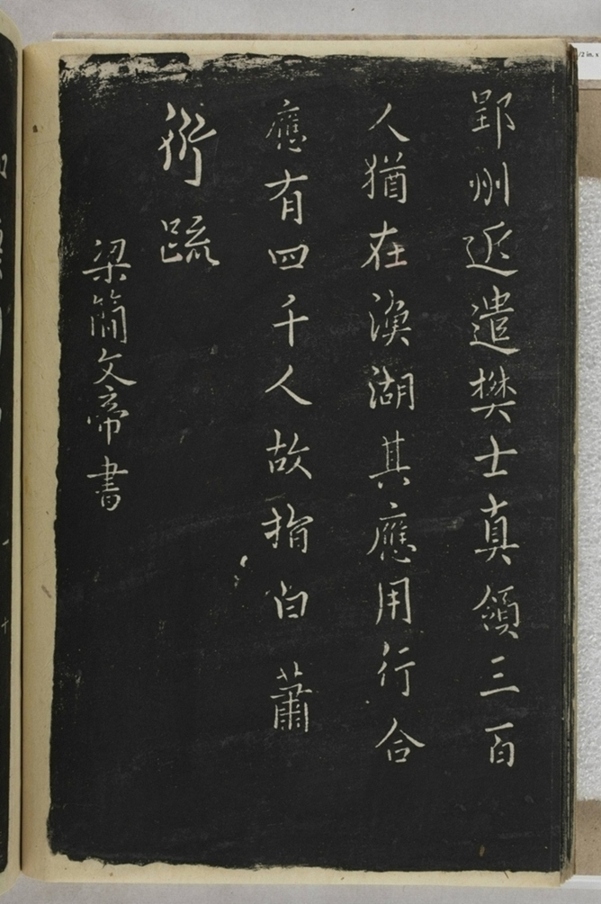 郢州近遣樊士真領三百
人猶在渙湖其應用行合
應有四千人故指白 蕭
衍疏
梁簡文帝書